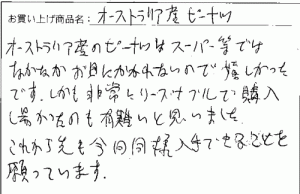 お買い上げ商品名：オーストラリア産ピーナッツ
オーストラリア産のピーナツはスーパー等では
なかなかお目にかかれないので嬉しかった
です。しかも非常にリーズナブルで購入
し易かったのも有難いと思いました
これから先も今回同様入手できることを
願っています。